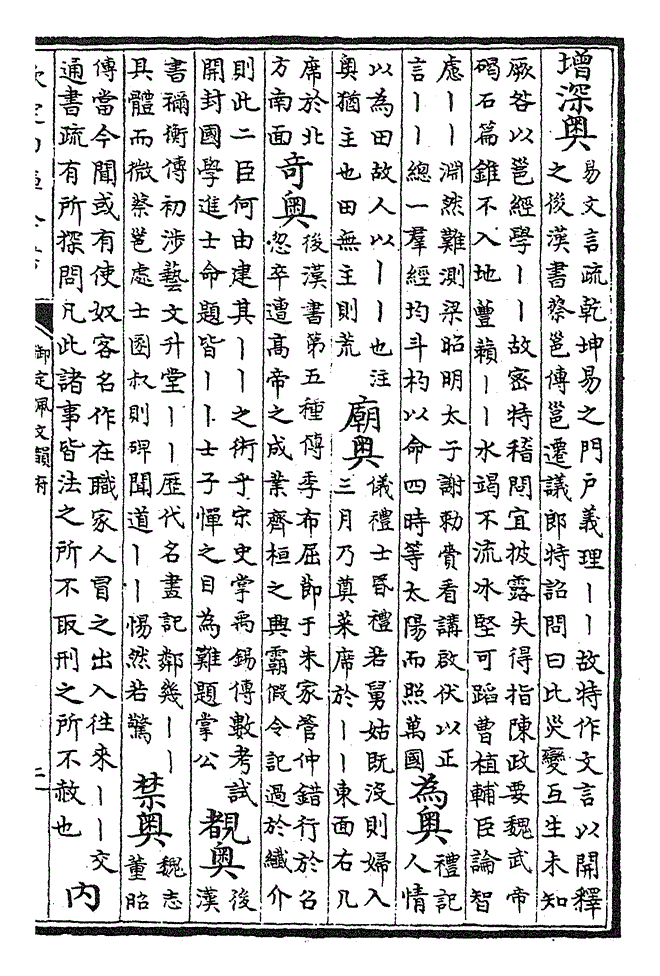 增深奧
易文言疏乾坤易之門户義理丨丨故特作文言以開釋
之後漢書蔡邕傳邕遷議郎特詔問曰此災變互生未知
厥咎以邕經學丨丨故密特稽問宜披露失得指陳政要魏武帝
碣石篇錐不入地蘴藾丨丨水竭不流冰堅可蹈曹植輔臣論智
慮丨丨淵然難測梁昭明太子謝勅賚看講啟伏以正
言丨丨總一羣經均斗杓以命四時等太陽而照萬國
為奧
禮記
人情
以為田故人以丨丨也注
奧猶主也田無主則荒
廟奧
儀禮士昏禮若舅姑既沒則婦入
三月乃奠菜席於丨丨東面右几
席於北
方南面
奇奧
後漢書第五種傳季布屈節于朱家管仲錯行於召
忽卒遭高帝之成業齊桓之興霸假令記過於纖介
則此二臣何由建其丨丨之術乎宋史掌禹錫傳數考試
開封國學進士命題皆丨丨士子憚之目為難題掌公
覩奧
後
漢
書禰衡傳初涉藝文升堂丨丨歷代名畫記鄰幾丨丨
具體而微蔡邕處士圂叔則碑聞道丨丨惕然若驚
禁奧
魏志
董昭
傳當今聞或有使奴客名作在職家人冒之出入往來丨丨交
通書疏有所探問凡此諸事皆法之所不取刑之所不赦也
內
欽定四庫全書
御定佩文韻府
二